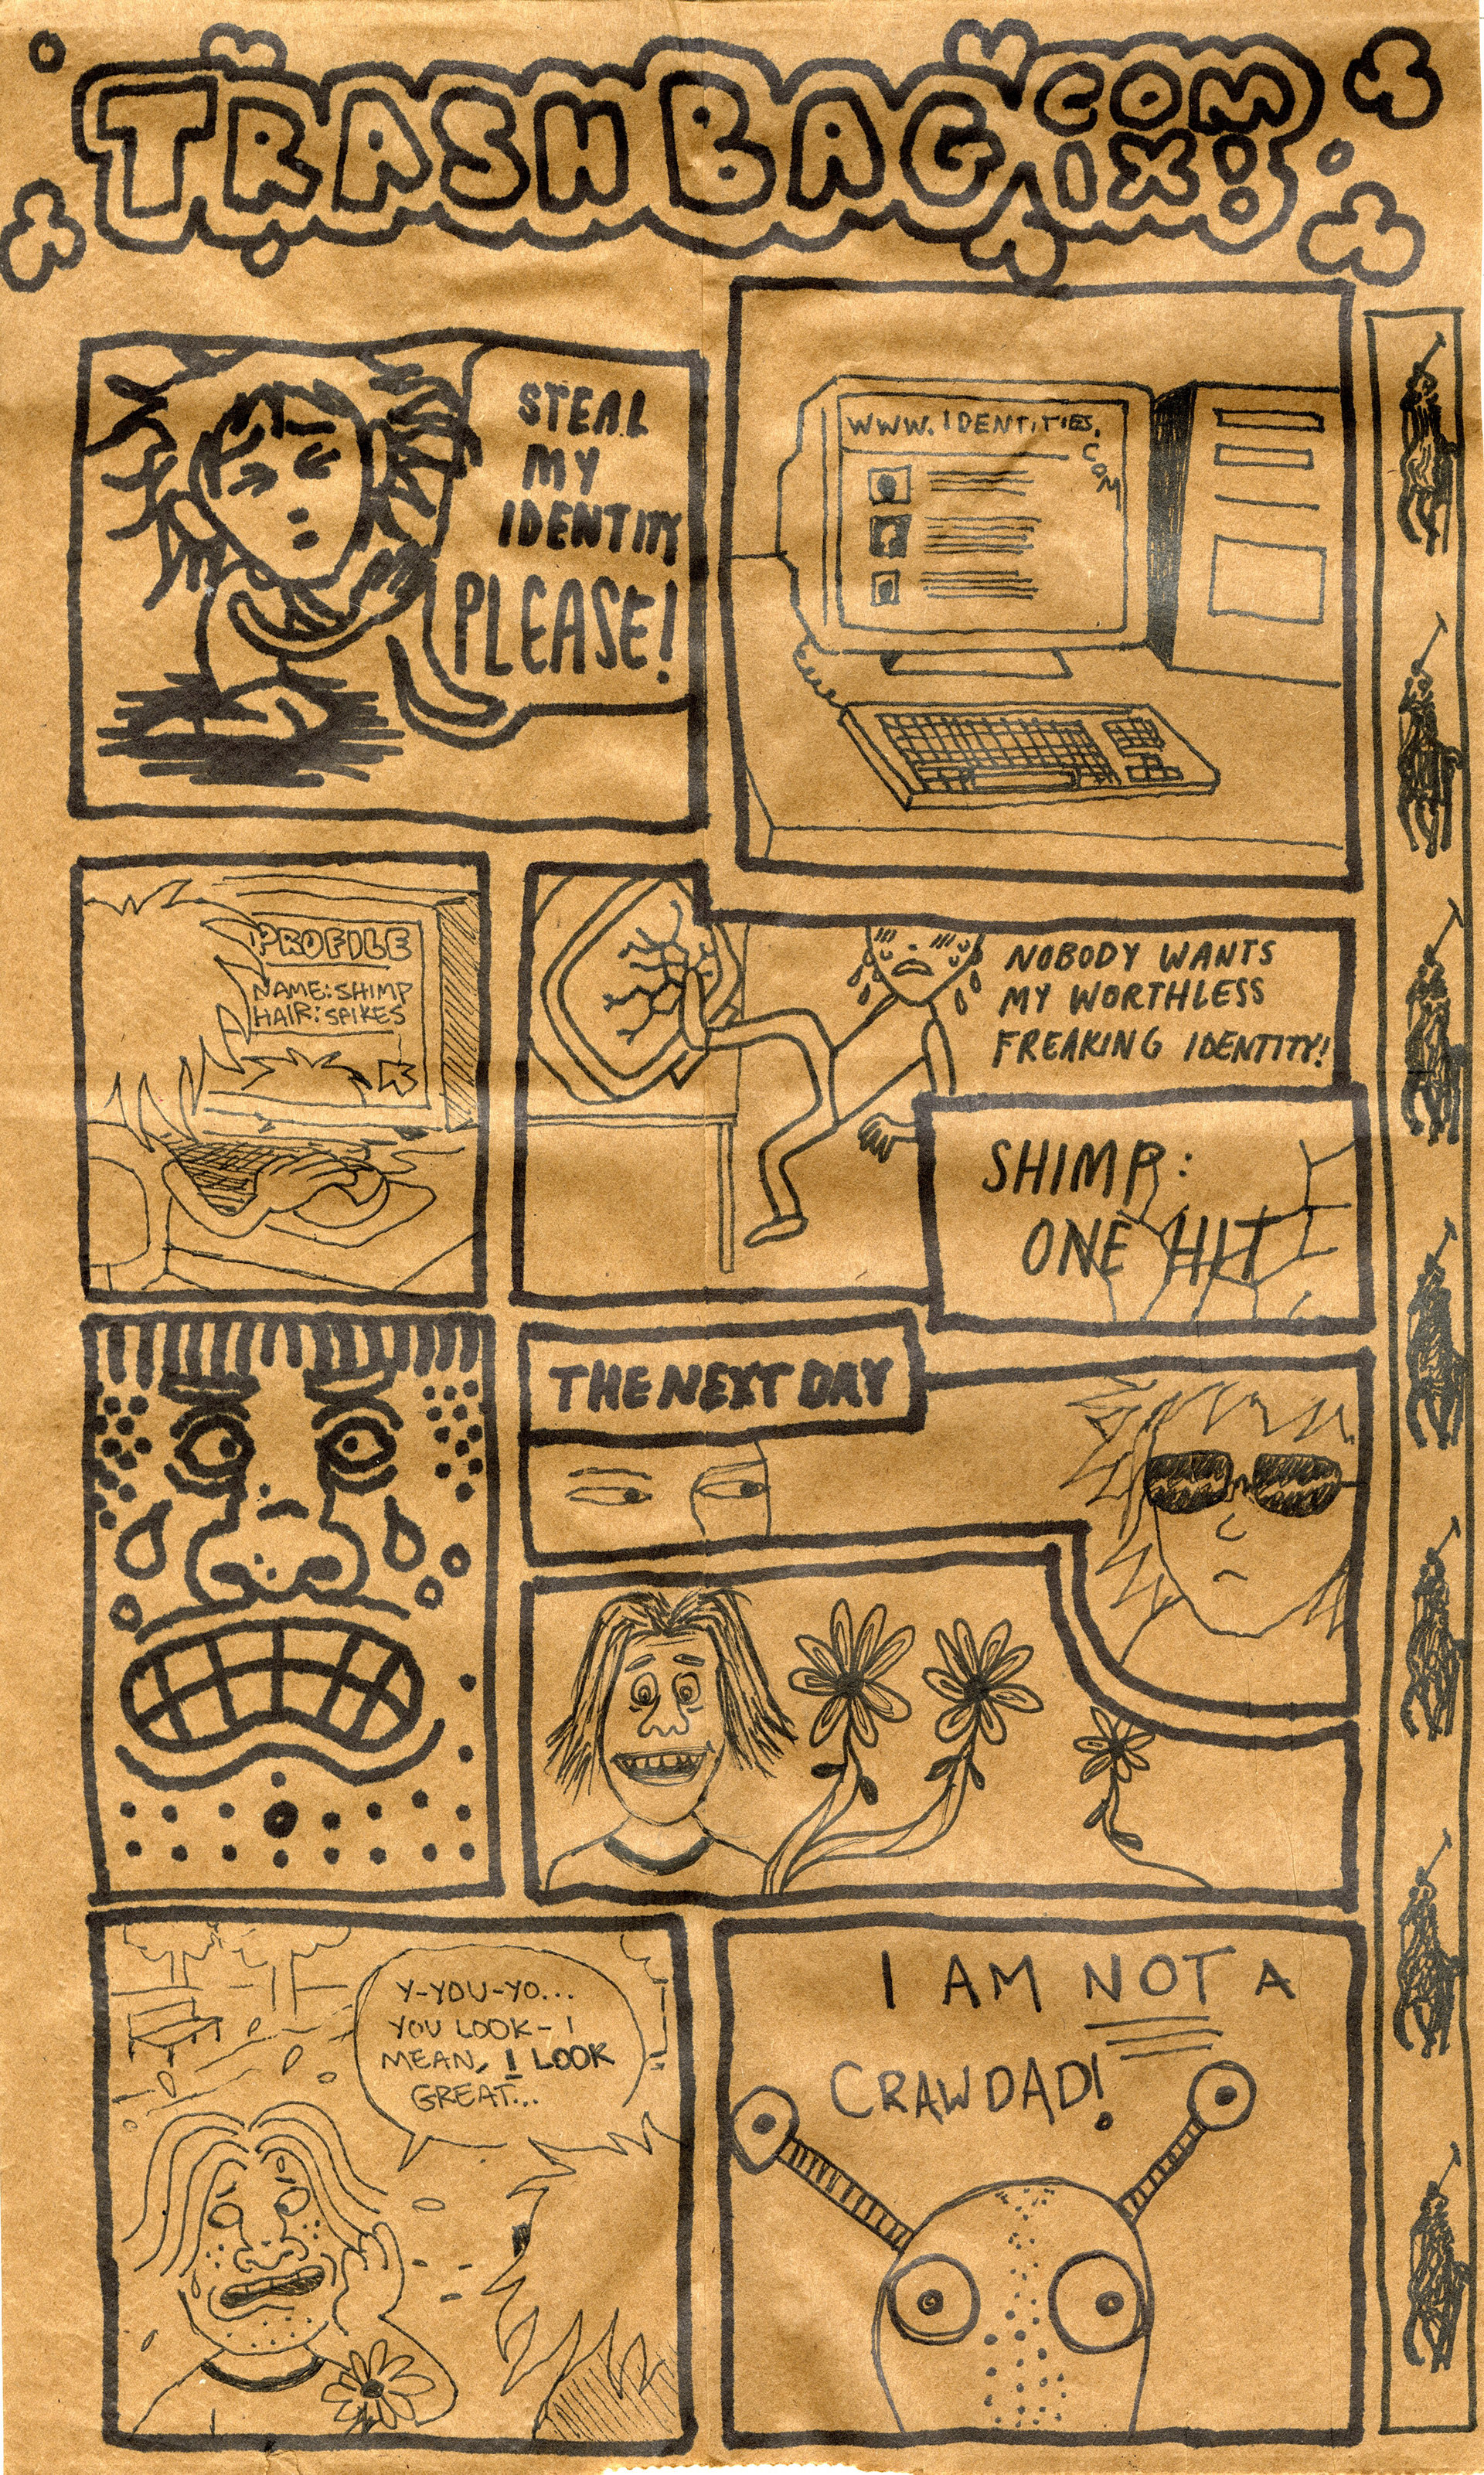 TRASH BAG COM
IX!
STEAL
MY
IDENTITY
PLEASE!
WWW.IDENTITIES.
COM
PROFILE
NAME: SHIMP
HAIR: SPIKES
NOBODY WANTS
MY WORTHLESS
FREAKING IDENTITY!
SHIMP:
ONE HIT
THE NEXT DAY
Y-YOU-YO...
YOU LOOK- I
MEAN, I LOOK
GREAT...
I AM NOT A
CRAWDAD!